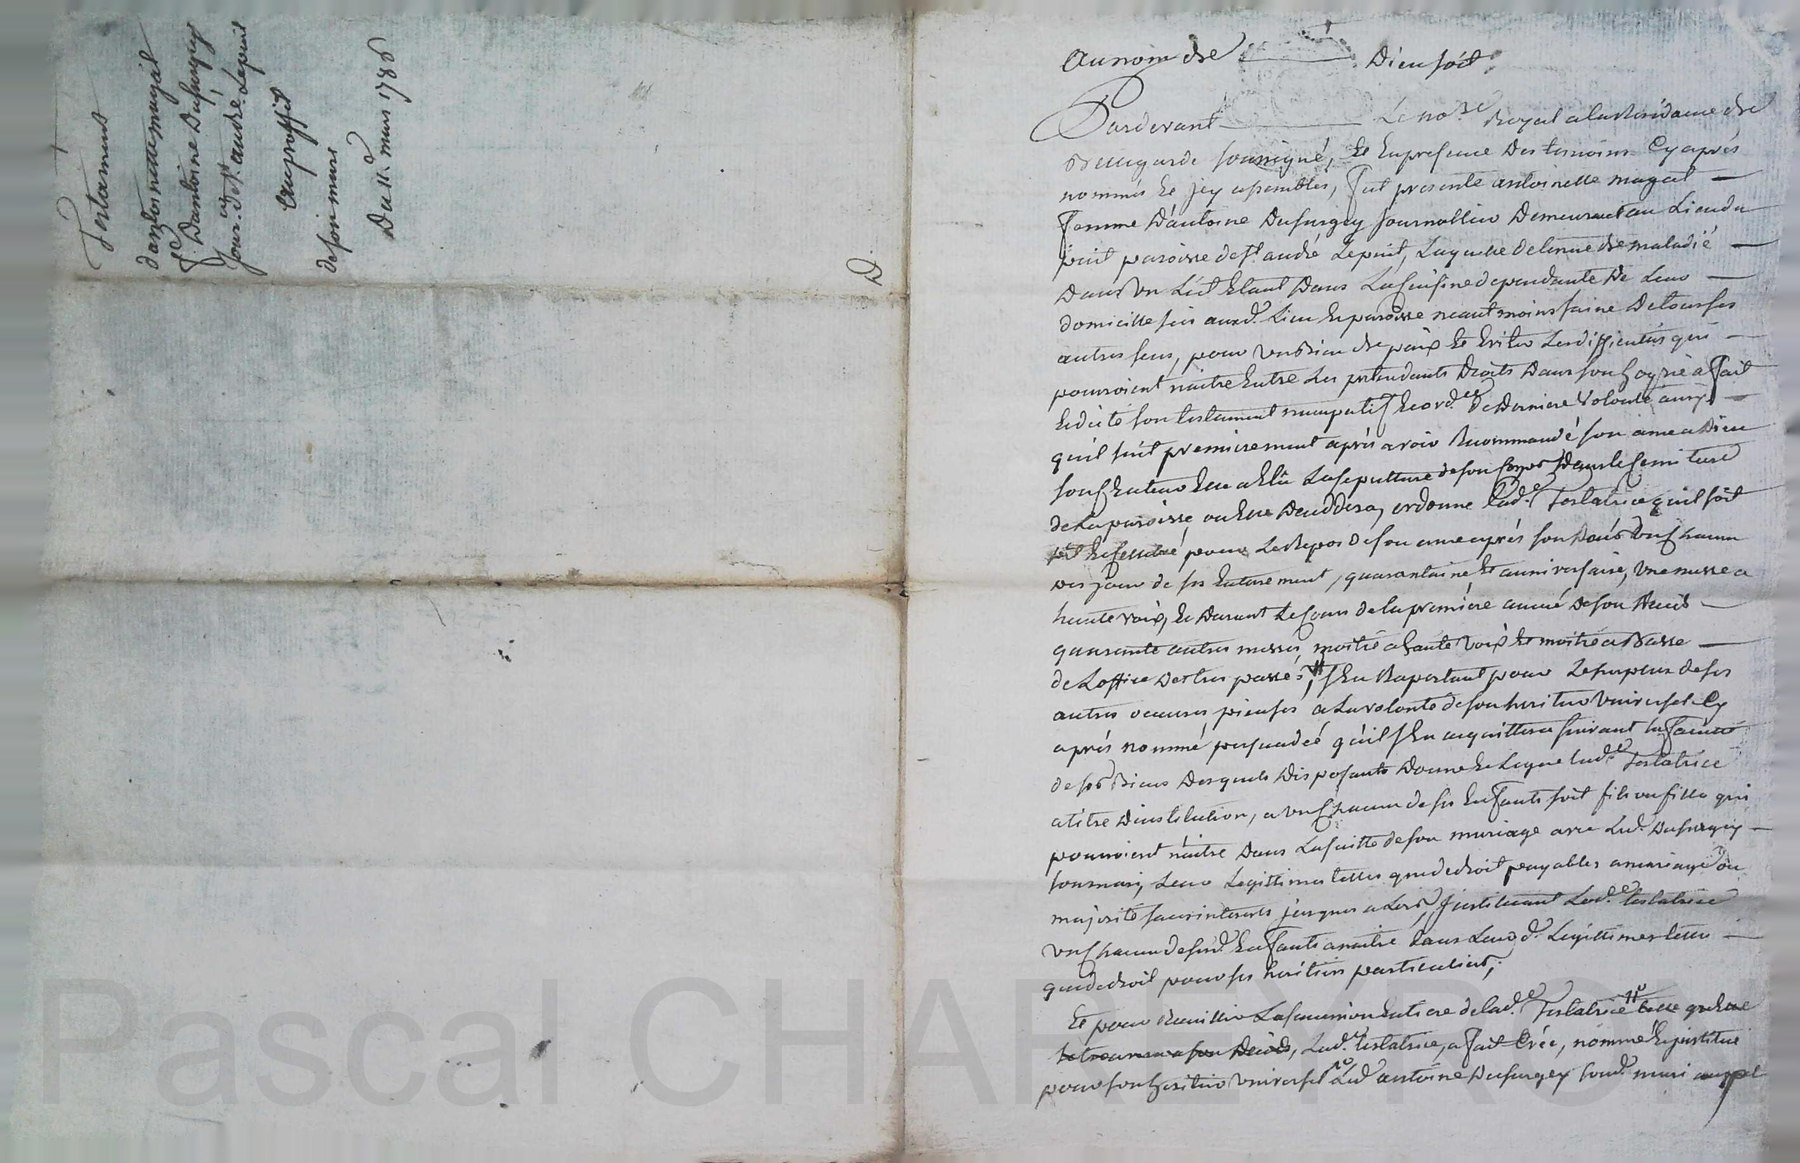 Testament
dantoinette magat
fe Dantoine Dufurgey
jour. de st. andré Lepuit
au proffit
de son mary
Du 11e mars 1786
D.
Au nom de Dieu soit
Pardevant Le no.re Royal a la Residance de
Beauregarde soussigné, et En presence Des temoins Cy après
nommés et jcy assemblés, fut presente antoinette magat
femme D'antoine Dufurgey journallier Demeurant au Lieu du
puit paroisse de st. andré Lepuit, Laquelle detenue de maladié
Dans un Lict Etant Dans La Cuisine dependante De Leur
domicille sis aud. Lieu Et paroisse neantmoins saine De tous ses
autres sens, pour un Bien de paix Et Eviter Les difficultés qui
pourroient naitre Entre Les pretendants Droits Dans son hoyrie a fait
Et dicté son testament nuncupatif Et ord.ce De Derniere Volonté ainsy
qu'il suit premierement après avoir Recommandé son ame a Dieu
son Createur Elle a Elû La sepulture de son Corps Dans le Semitiere
de La paroisse ou Elle Deceddera, ordonne lad.e Testatrice qu'il soit
dit Et Celebré pour Le Repos De son ame après son Decés Un Chacun
des jours de ses Enterrement, quarantaine Et anniversaire, Une messe a
haute voix, Et Durant Le Cours de la premiere année De son Decés
quarante autres messes, moitié a haute voix Et moitié a Basse
de L'office Des trepassés, s'En Raportant pour Le surplus de ses
autres oeuvres pieuses a La volonté de son heritier Universel Cy
après nommé, persuadeé qu'il s'En acquittera suivant la faculté
de ses Biens Desquels Disposants Donne Et Legue lad.e Testatrice
a titre D'institution, a un Chacun de ses Enfants soit fils ou filles qui
pourroient naitre Dans La suitte de son mariage avec Led. Dufurgey
son mary, Leur Legittimes telles que de droit payables a mariage ou
majorité sans interests jusques a Lors, jnstituant Lad.e testatrice
Un Chacun de sesd. Enfants a naitre dans Leurd. Legittimes telles
que de droit pour ses heritiers particuliers,
Et pour Recuillir La succession Entiere de lad.e Testatrice telle quelle
se trouvera a son Decés, Lad.e testatrice, a fait Crée, nommé Et jnstitué
pour son heritier Universel Led. antoine Dufurgey sond. mari